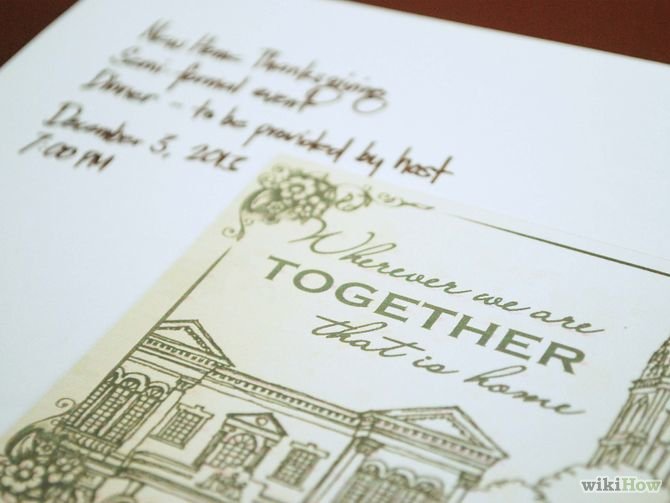 New Home Thanksgiving
Semi-formal event
Dinner - to be provided by host
December 5, 2015
7:00 PM
Wherever we are
TOGETHER
that is home
wikiHow